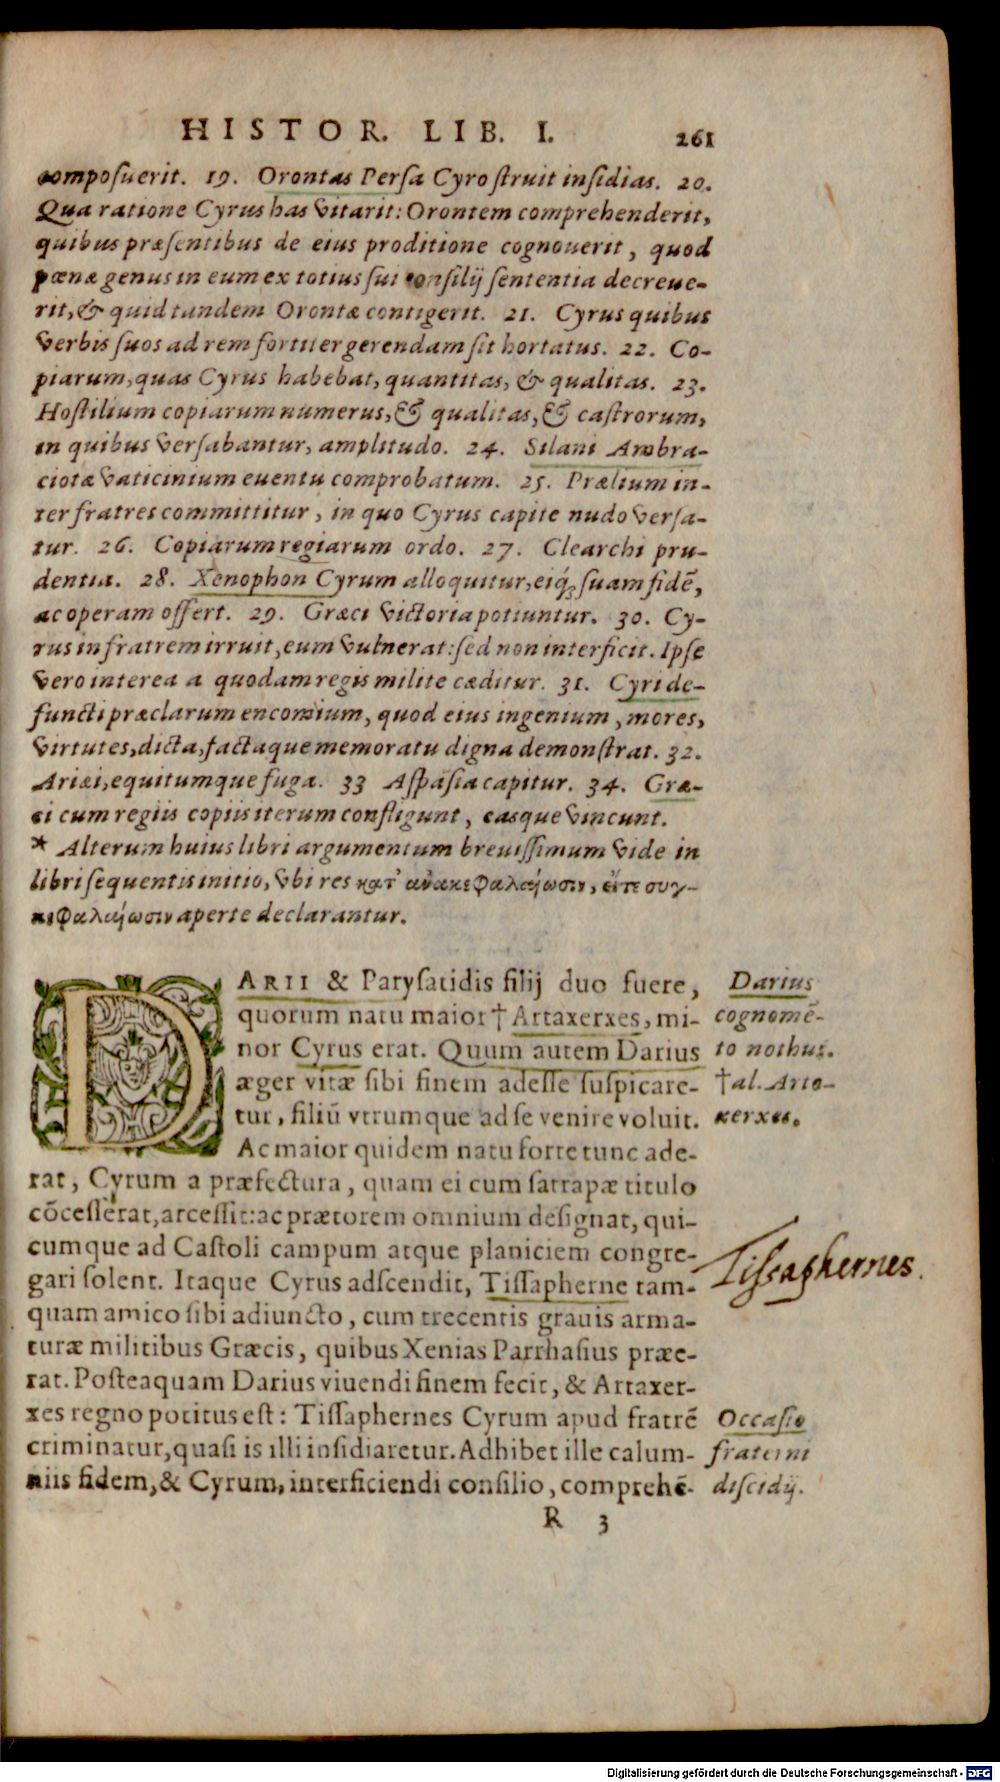 HISTOR. LIB. I. 261
composuerit. 19. Orontas Persa Cyro struit insidias. 20.
Qua ratione Cyrus has vitarit: Orontem comprehenderit,
quibus præsentibus de eius proditione cognouerit, quod
pœnæ genus in eum ex totius sui consilij sententia decreue-
rit, & quid tandem Orontæ contigerit. 21. Cyrus quibus
verbis suos ad rem fortiter gerendam sit hortatus. 22. Co-
piarum, quas Cyrus habebat, quantitas, & qualitas. 23.
Hostilium copiarum numerus, & qualitas, & castrorum,
in quibus versabantur, amplitudo. 24. Silani Ambra-
ciotæ vaticinium euentu comprobatum. 25. Prælium in-
ter fratres committitur, in quo Cyrus capite nudo versa-
tur. 26. Copiarum regiarum ordo. 27. Clearchi pru-
dentia. 28. Xenophon Cyrum alloquitur, eiq́; suam fidē,
ac operam offert. 29. Græci victoria potiuntur. 30. Cy-
rus in fratrem irruit, eum vulnerat: sed non interficit. Ipse
vero interea a quodam regis milite cæditur. 31. Cyri de-
functi præclarum encomium, quod eius ingenium, mores,
virtutes, dicta, factaque memoratu digna demonstrat. 32.
Ariæi, equitumque fuga. 33 Aspasia capitur. 34. Græ-
ci cum regiis copiis iterum confligunt, easque vincunt.
* Alterum huius libri argumentum breuissimum vide in
libri sequentis initio, vbi res κατ' ἀνακεφαλαίωσιν, εἴτε συγ-
κεφαλαίωσιν aperte declarantur.
DARII & Parysatidis filij duo fuere,
quorum natu maior † Artaxerxes, mi-
nor Cyrus erat. Quum autem Darius
æger vitæ sibi finem adesse suspicare-
tur, filiū vtrumque ad se venire voluit.
Ac maior quidem natu forte tunc ade-
rat, Cyrum a præfectura, quam ei cum satrapæ titulo
cōcesserat, arcessit: ac prætorem omnium designat, qui-
cumque ad Castoli campum atque planiciem congre-
gari solent. Itaque Cyrus adscendit, Tissapherne tam-
quam amico sibi adiuncto, cum trecentis grauis arma-
turæ militibus Græcis, quibus Xenias Parrhasius præe-
rat. Posteaquam Darius viuendi finem fecit, & Artaxer-
xes regno potitus est: Tissaphernes Cyrum apud fratrē
criminatur, quasi is illi insidiaretur. Adhibet ille calum-
niis fidem, & Cyrum, interficiendi consilio, comprehē-
R 3
Darius
cognomē-
to nothus.
† al. Arto-
xerxes.
Tissaphernes.
Occasio
fraterni
discidij.
Digitalisierung gefördert durch die Deutsche Forschungsgemeinschaft - DFG